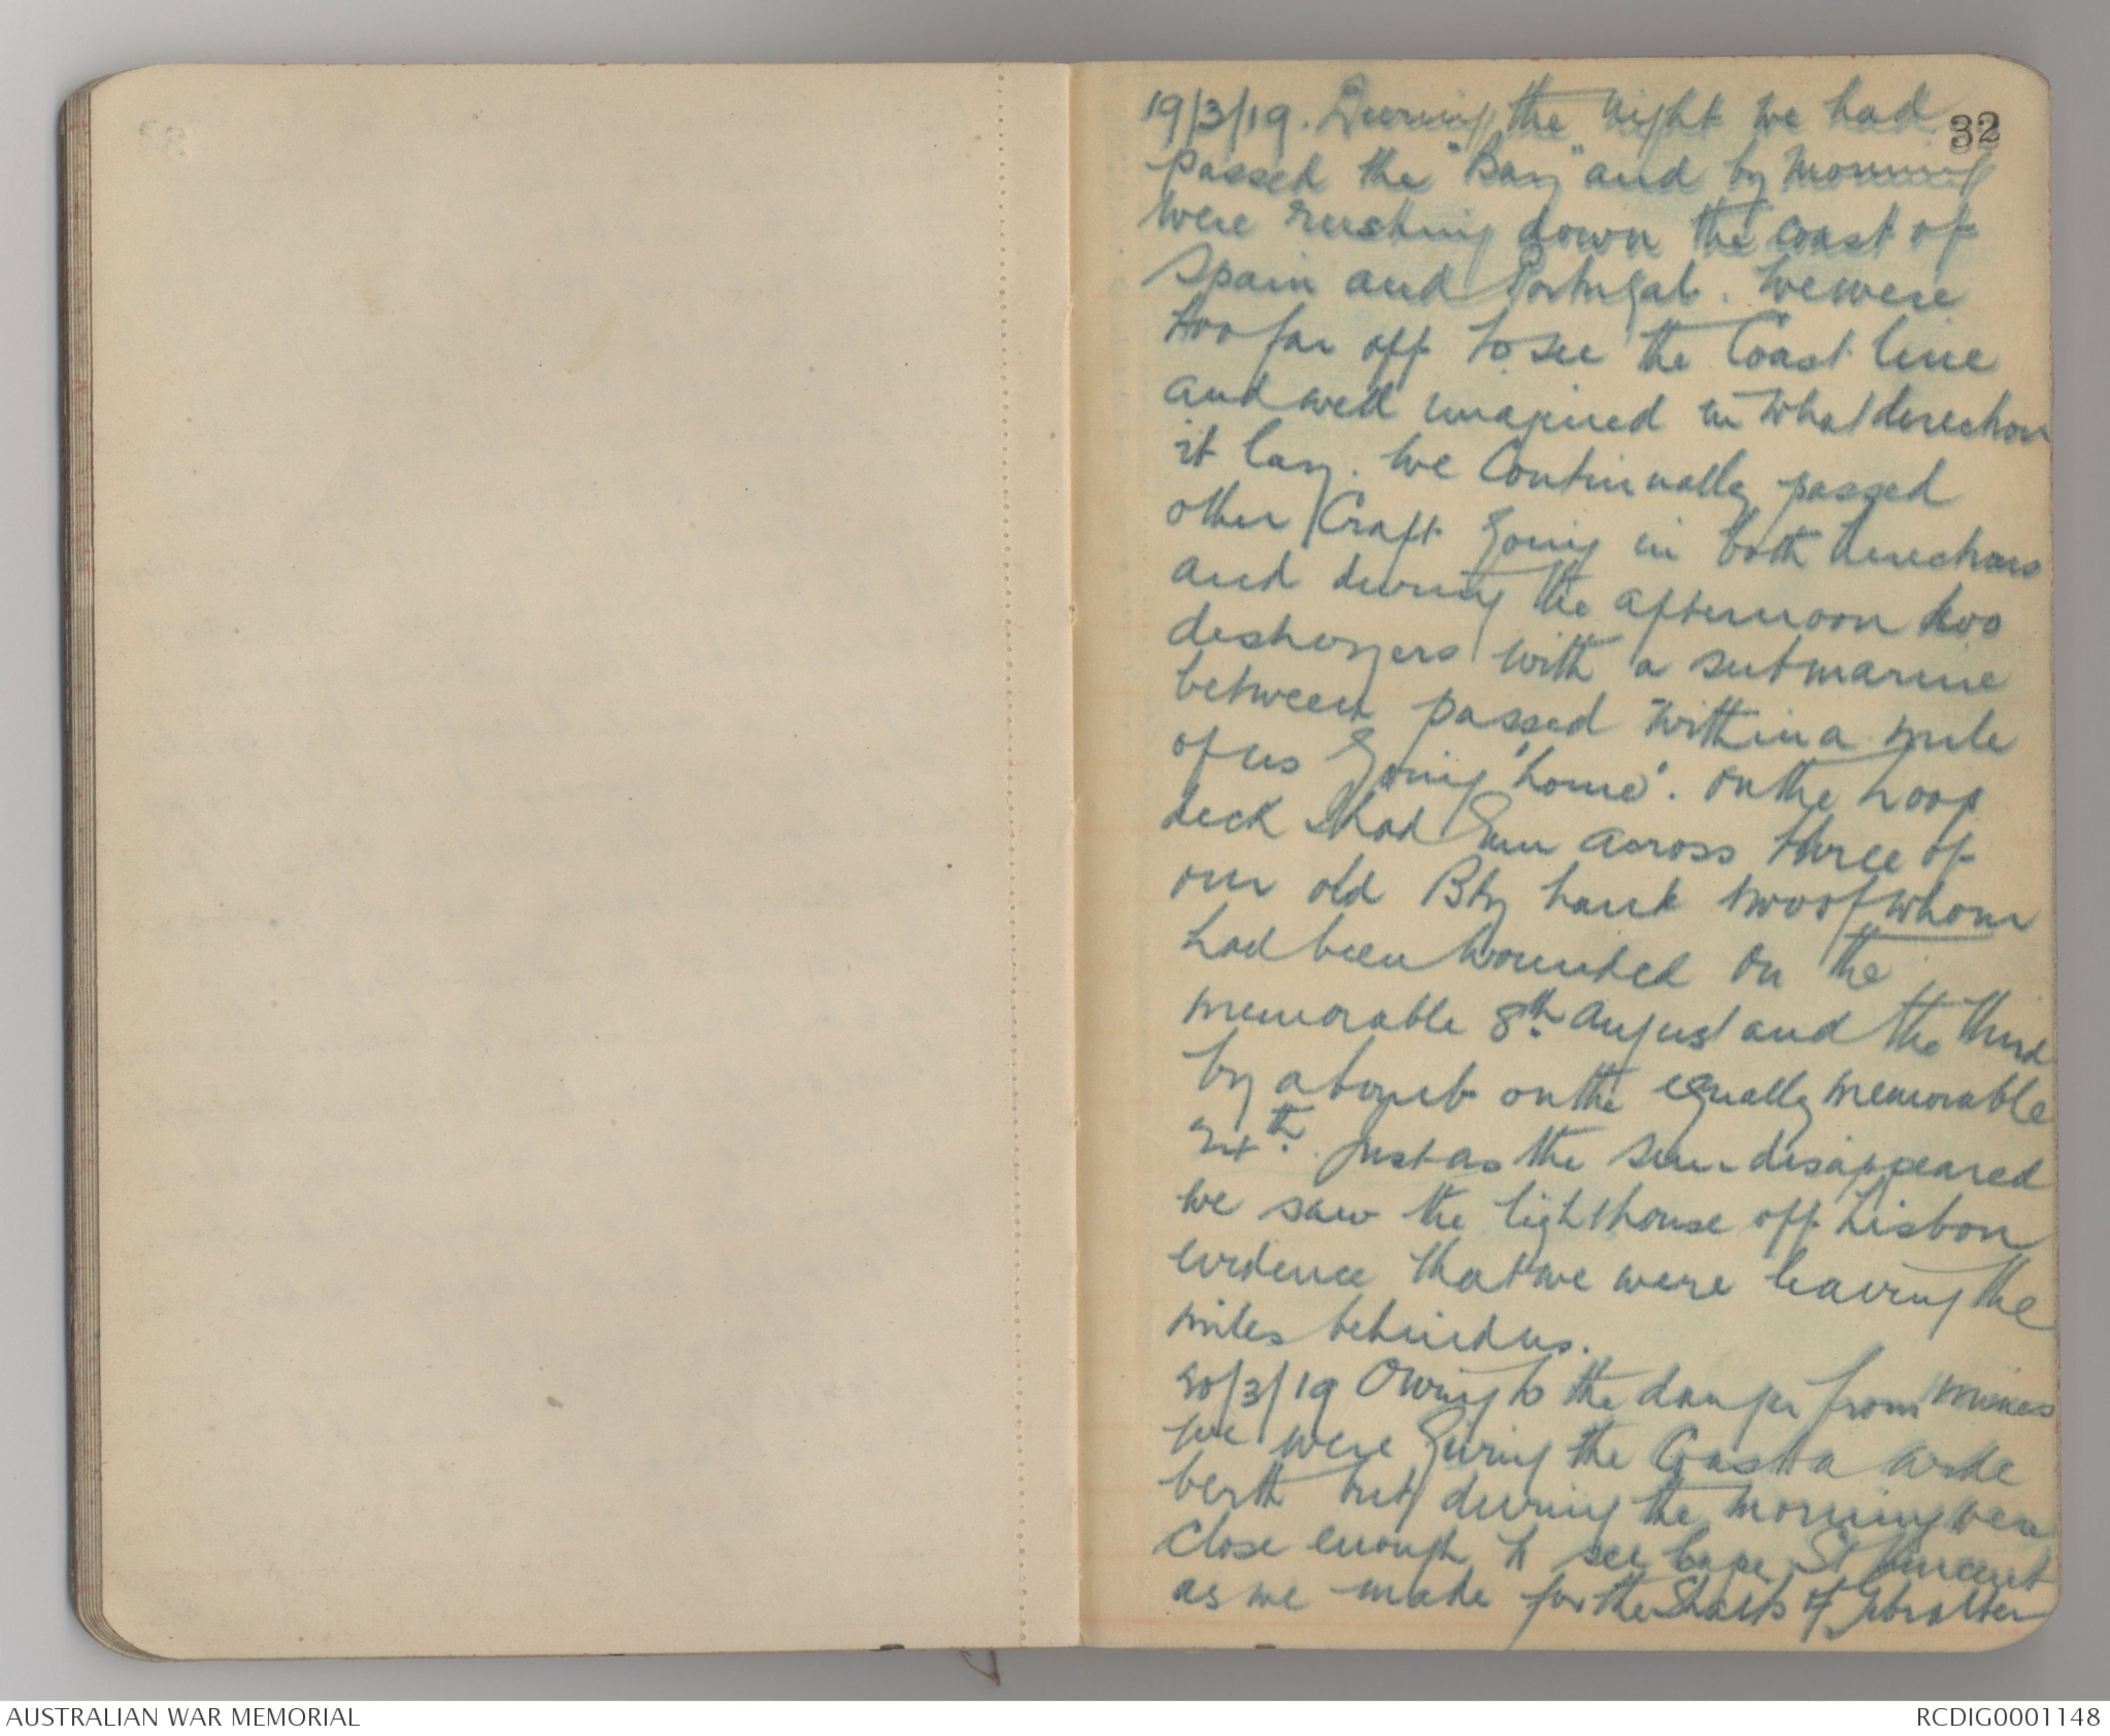 32
19/3/19. During the night we had
passed the "Bay" and by morning
were rushing down the coast of
Spain and Portugal. We were
too far off to see the Coast line
and well imagined in what direction
it lay. We Continually passed
other Craft going in both directions
and during the afternoon two
destroyers with a submarine
between passed within a mile
of us going 'home'. On the
deck I had run across three of
our old Bty two of whom
had been wounded on the
memorable 8th August and the third
by a on the equally memorable
Just as the sun disappeared
we saw the lighthouse off Lisbon
evidence that we were leaving the
miles behind us.
20/3/19 Owing to the danger from mines
we were giving the Coast a wide
berth but during the morning were
close enough to see Cape St Vincent
as we made for the Straits of Gibralter
AUSTRALIAN WAR MEMORIAL
RCDIG0001148